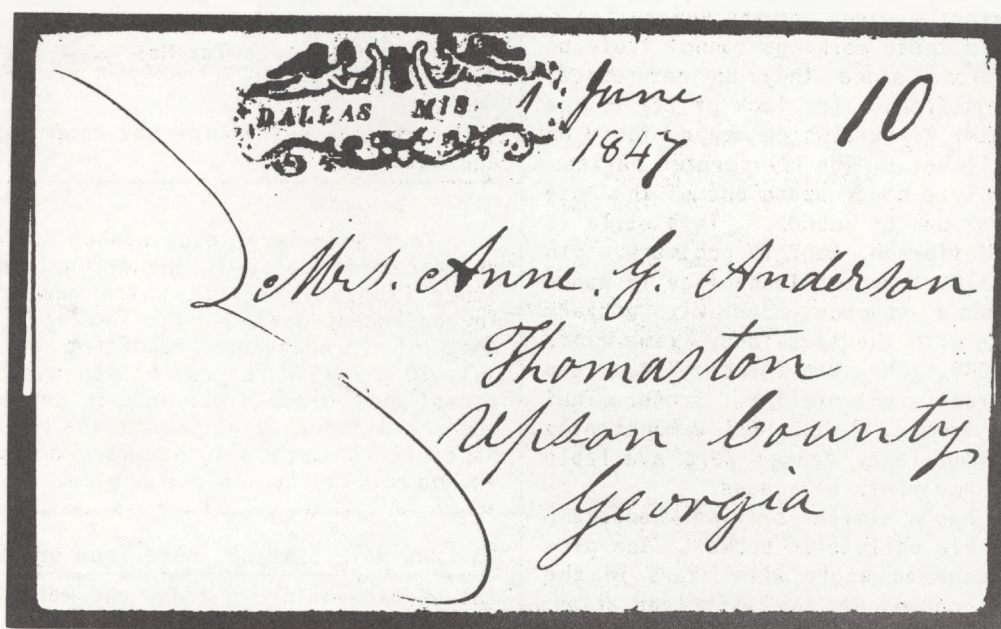 DALLAS MIS.
1. June
1847
10
Mrs. Anne G. Anderson
Thomaston
Upson County
Georgia